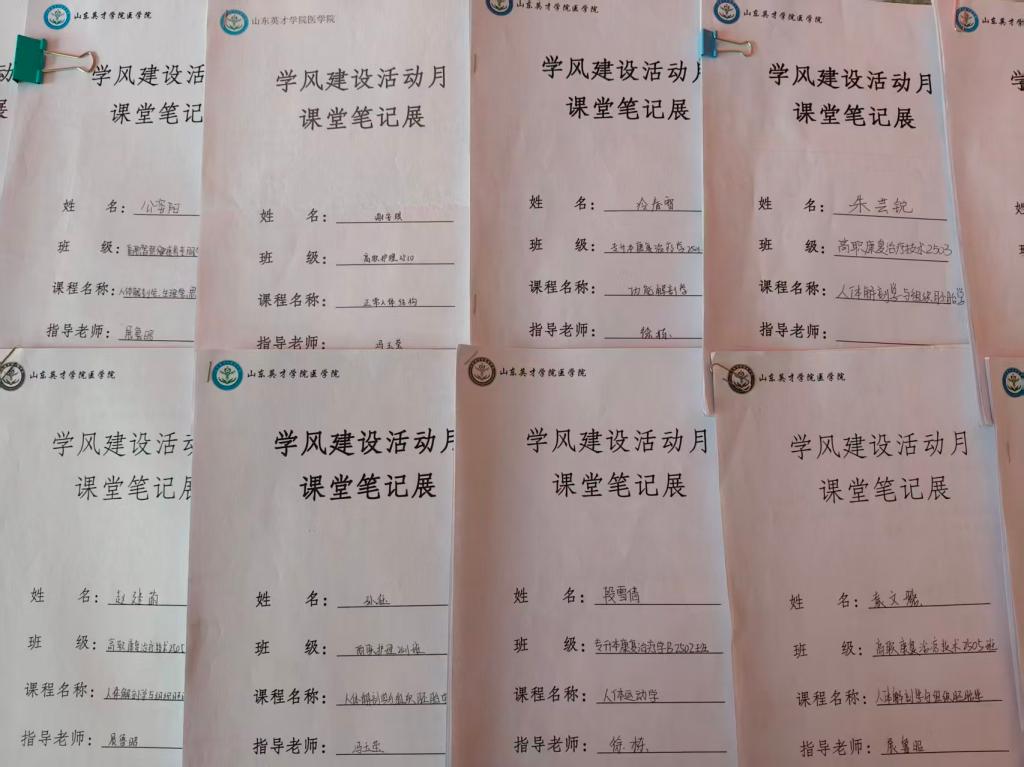 山东英才学院医学院
学风建设活
课堂笔记
姓 名：公
班 级：
课程名称：人体解剖学、生理学、
指导老师：展鲁昭
山东英才学院医学院
学风建设活动月
课堂笔记展
姓 名：谢
班 级：高职护理2510
课程名称：正常人体结构
指导老师：冯玉荣
山东英才学院医学院
学风建设活动月
课堂笔记展
姓 名：
班 级：专升本康复治疗学2501
课程名称：功能解剖学
指导老师：徐栋
山东英才学院医学院
学风建设活动月
课堂笔记展
姓 名：朱芸锐
班 级：高职康复治疗技术2503
课程名称：人体解剖学与组织胚胎学
指导老师：
山东英
学
山东英才学院医学院
学风建设活
课堂笔记
姓 名：赵
班 级：高职康复治疗技术2505
课程名称：人体解剖学与组织胚胎
指导老师：展鲁昭
山东英才学院医学院
学风建设活动月
课堂笔记展
姓 名：孙
班 级：高职护理
课程名称：人体解剖学与组织胚胎学
指导老师：冯玉荣
山东英才学院医学院
学风建设活动月
课堂笔记展
姓 名：段雪倩
班 级：专升本康复治疗学B2502班
课程名称：人体运动学
指导老师：徐栋
山东英才学院医学院
学风建设活动月
课堂笔记展
姓 名：袁文
班 级：高职康复治疗技术2505班
课程名称：人体解剖学与组织胚胎学
指导老师：展鲁昭